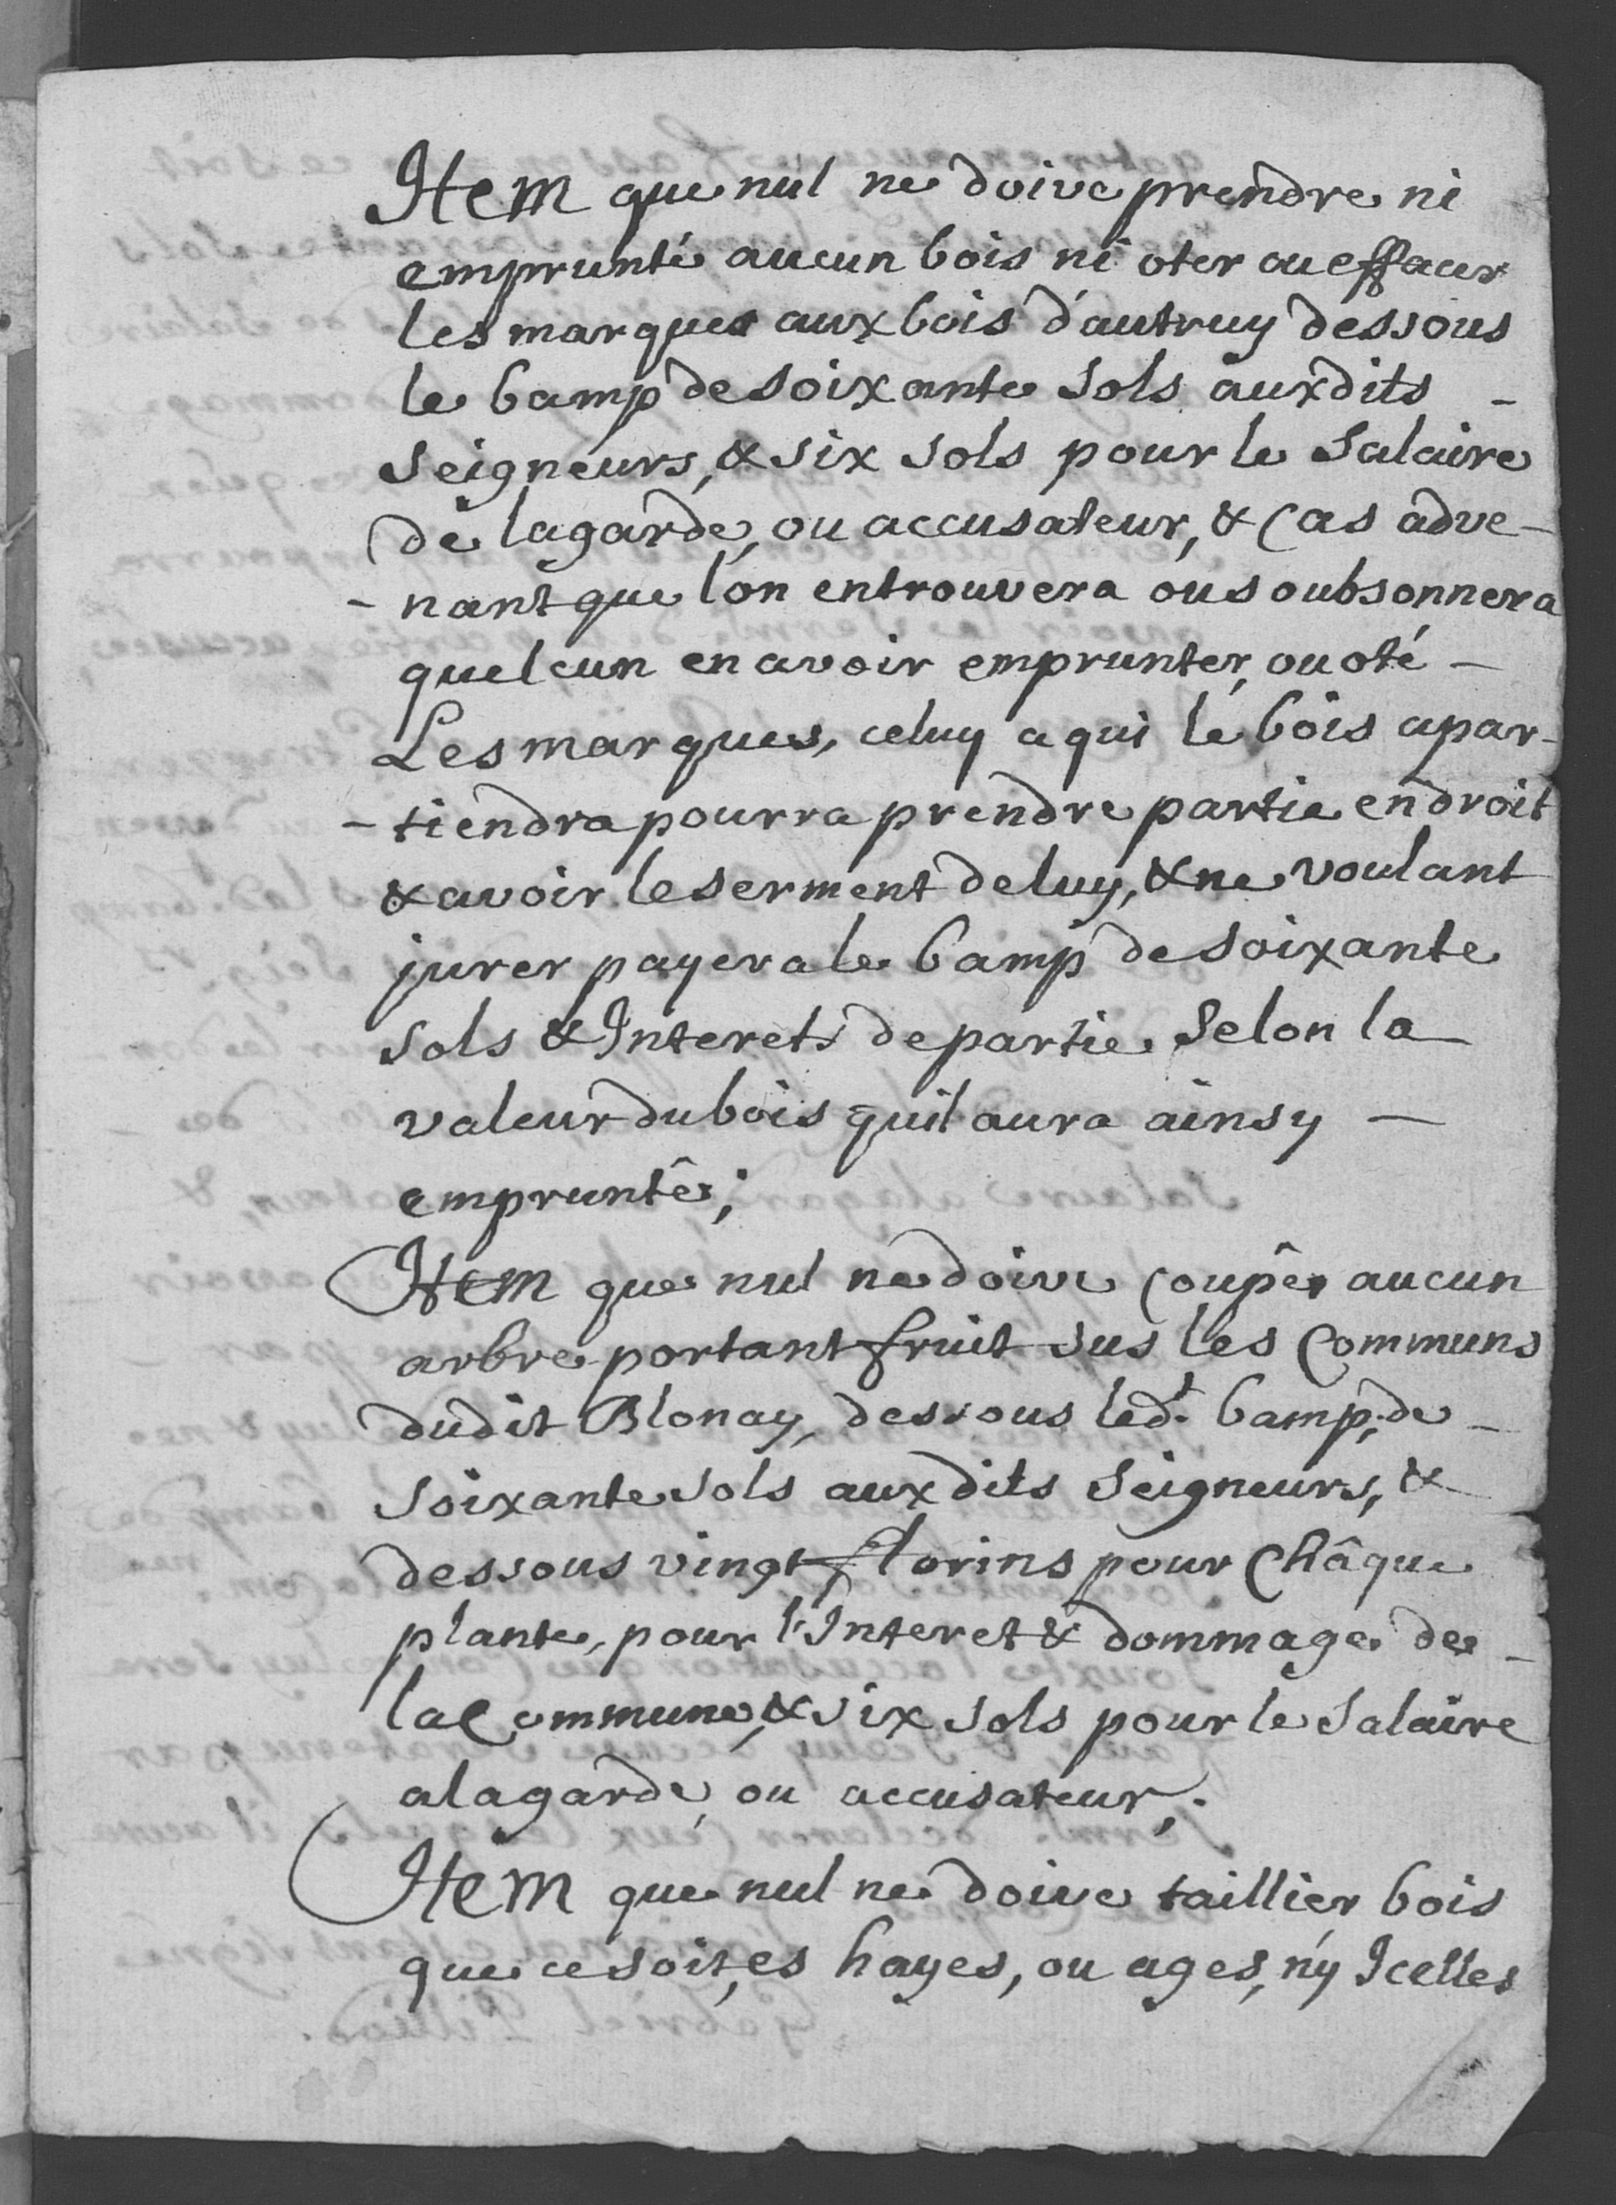 Item que nul ne doive prendre ni
emprunté aucun bois ni oter ou effacer
les marques aux bois d'autruy dessous
le bamp de soixante sols auxdits -
Seigneurs, & six sols pour le Salaire
de la garde, ou accusateur, & Cas adve-
- nant que l'on en trouvera ou soubsonnera
quelcun en avoir emprunter, ou oté -
Les marques, celuy a qui le bois apar-
- tiendra pourra prendre partie en droit
& avoir le serment de luy, & ne voulant
jurer payera le bamp de soixante
sols & Interets de partie Selon la
valeur du bois quil aura ainsy -
emprunté;
Item que nul ne doive Coupêr aucun
arbre portant fruit sus les Communs
dudit Blonay, dessous led.t bamp, de -
soixante sols auxdits Seigneurs, &
dessous vingt florins pour Châque
plante, pour l'Interet & dommage de -
la Commune, & six sols pour le Salaire
a la garde, ou accusateur;
Item que nul ne doive taillier bois
que ce soit, es hayes, ou ages, n'y Icelles